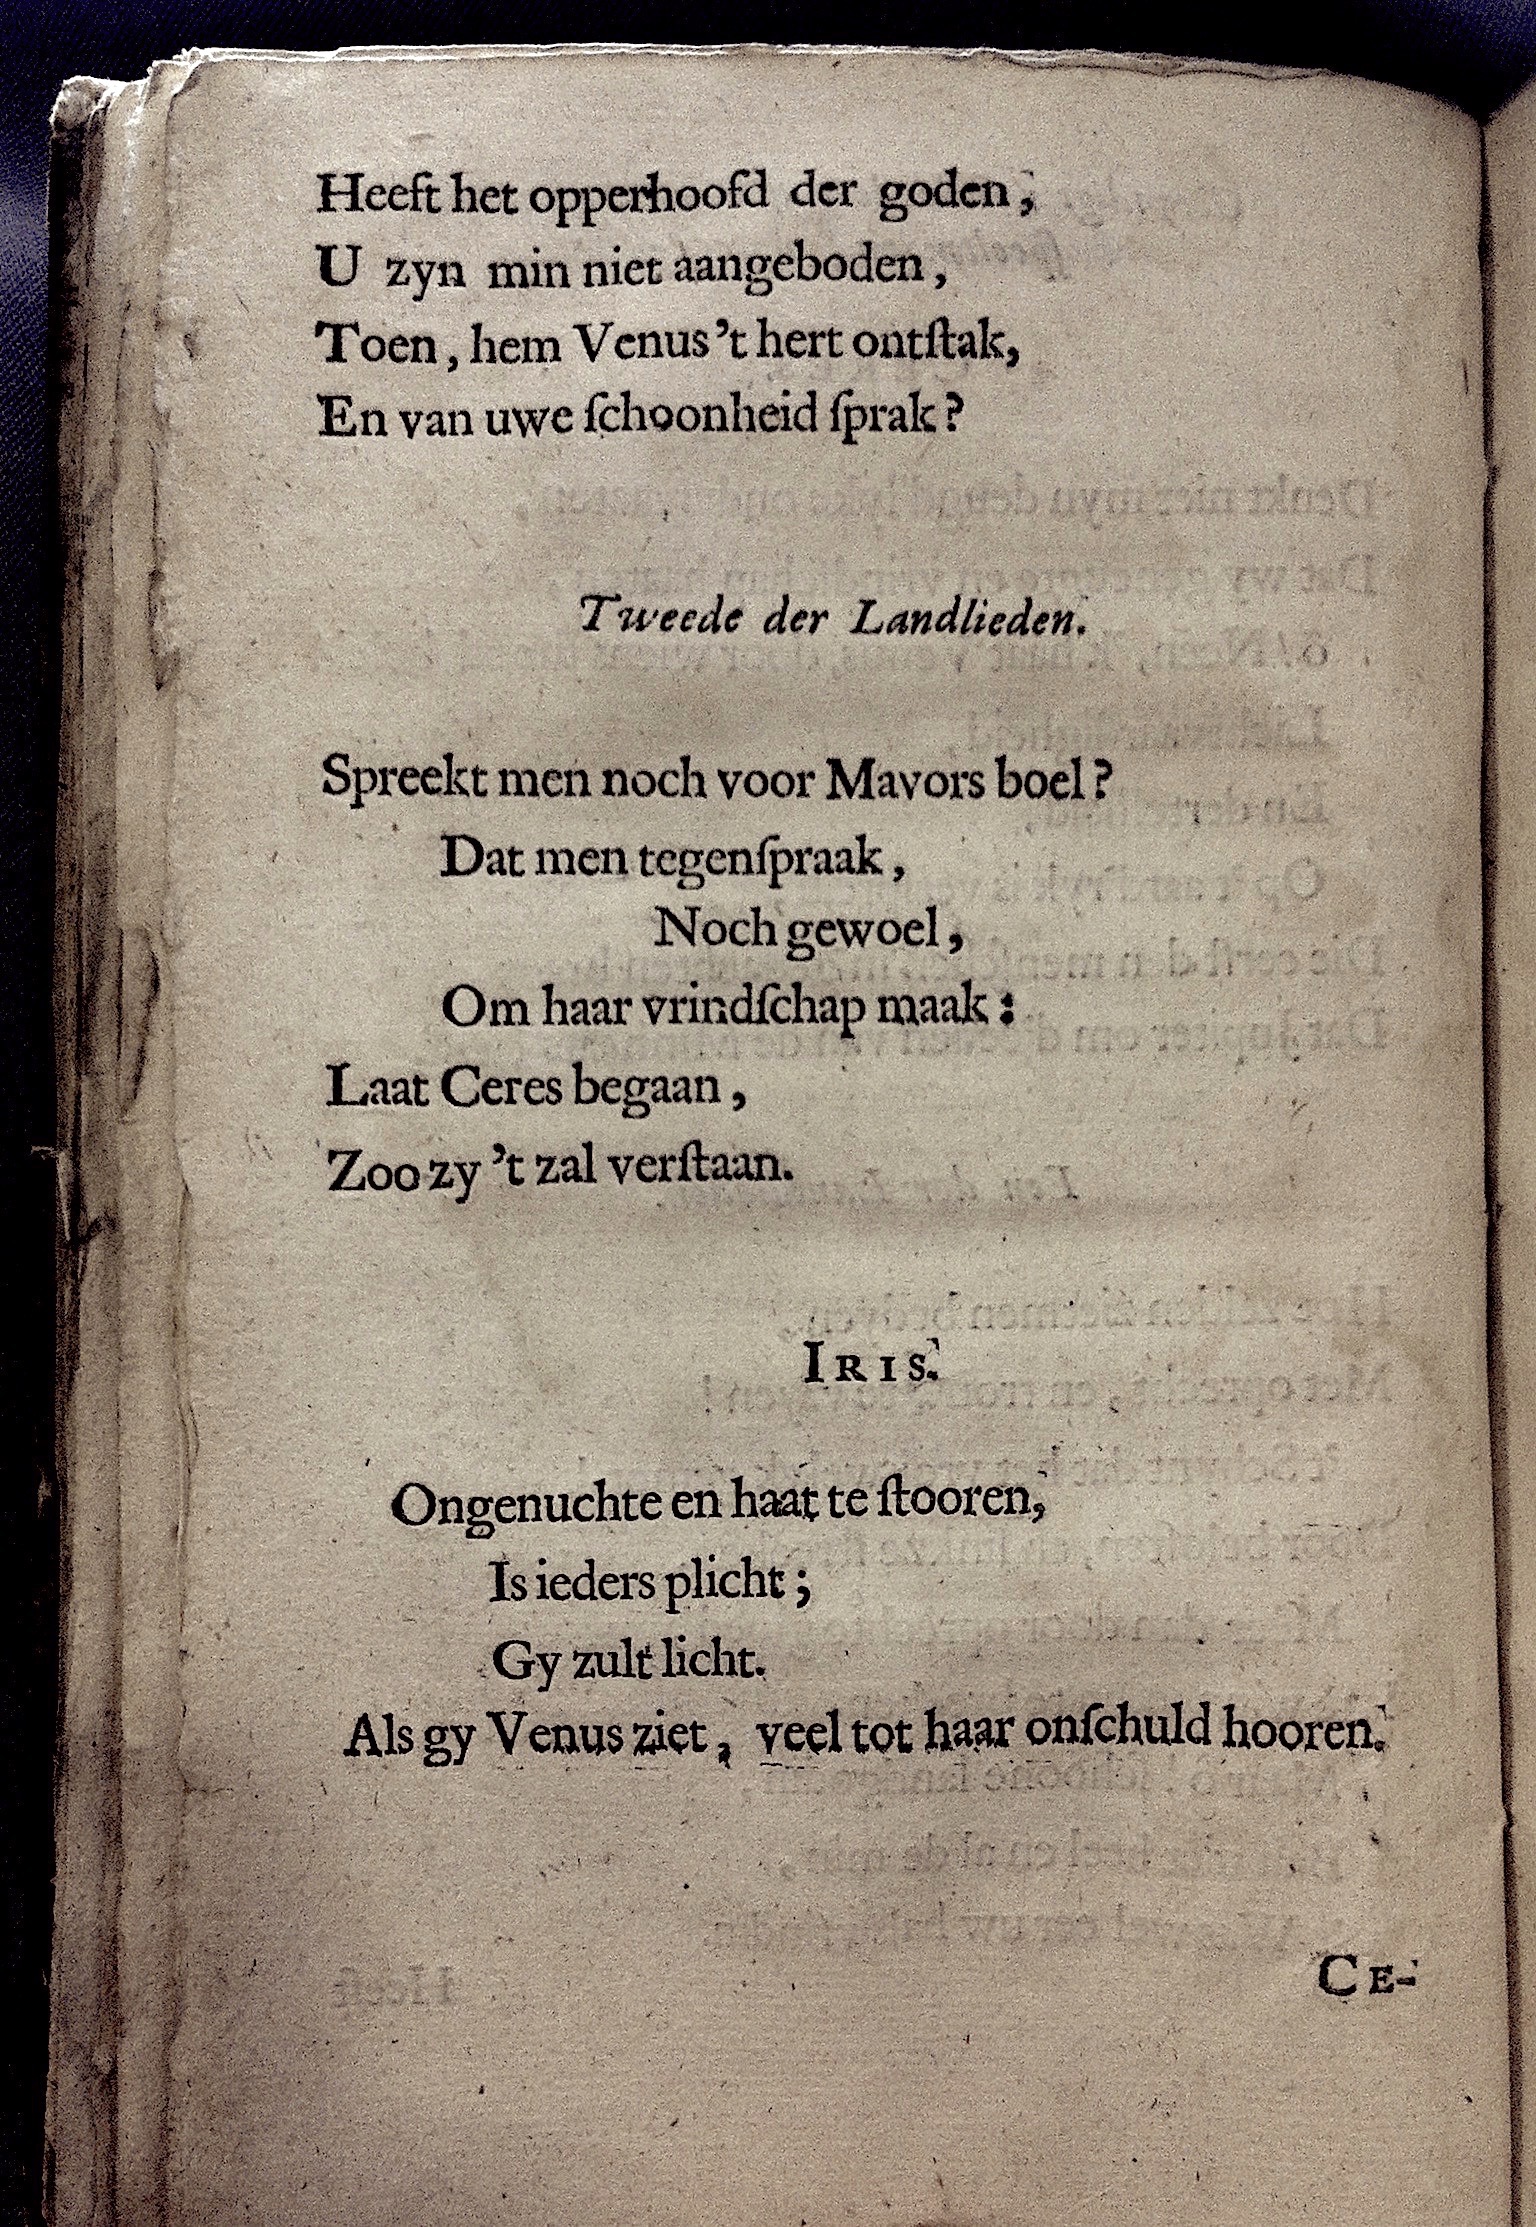 Heeft het opperhoofd der goden,
U zyn min niet aangeboden,
Toen, hem Venus 't hert ontſtak,
En van uwe ſchoonheid ſprak?
Tweede der Landlieden.
Spreekt men noch voor Mavors boel?
Dat men tegenſpraak,
Noch gewoel,
Om haar vrindſchap maak:
Laat Ceres begaan,
Zoo zy 't zal verſtaan.
IRIS.
Ongenuchte en haat te ſtooren,
Is ieders plicht;
Gy zult licht.
Als gy Venus ziet, veel tot haar onſchuld hooren.
CE-